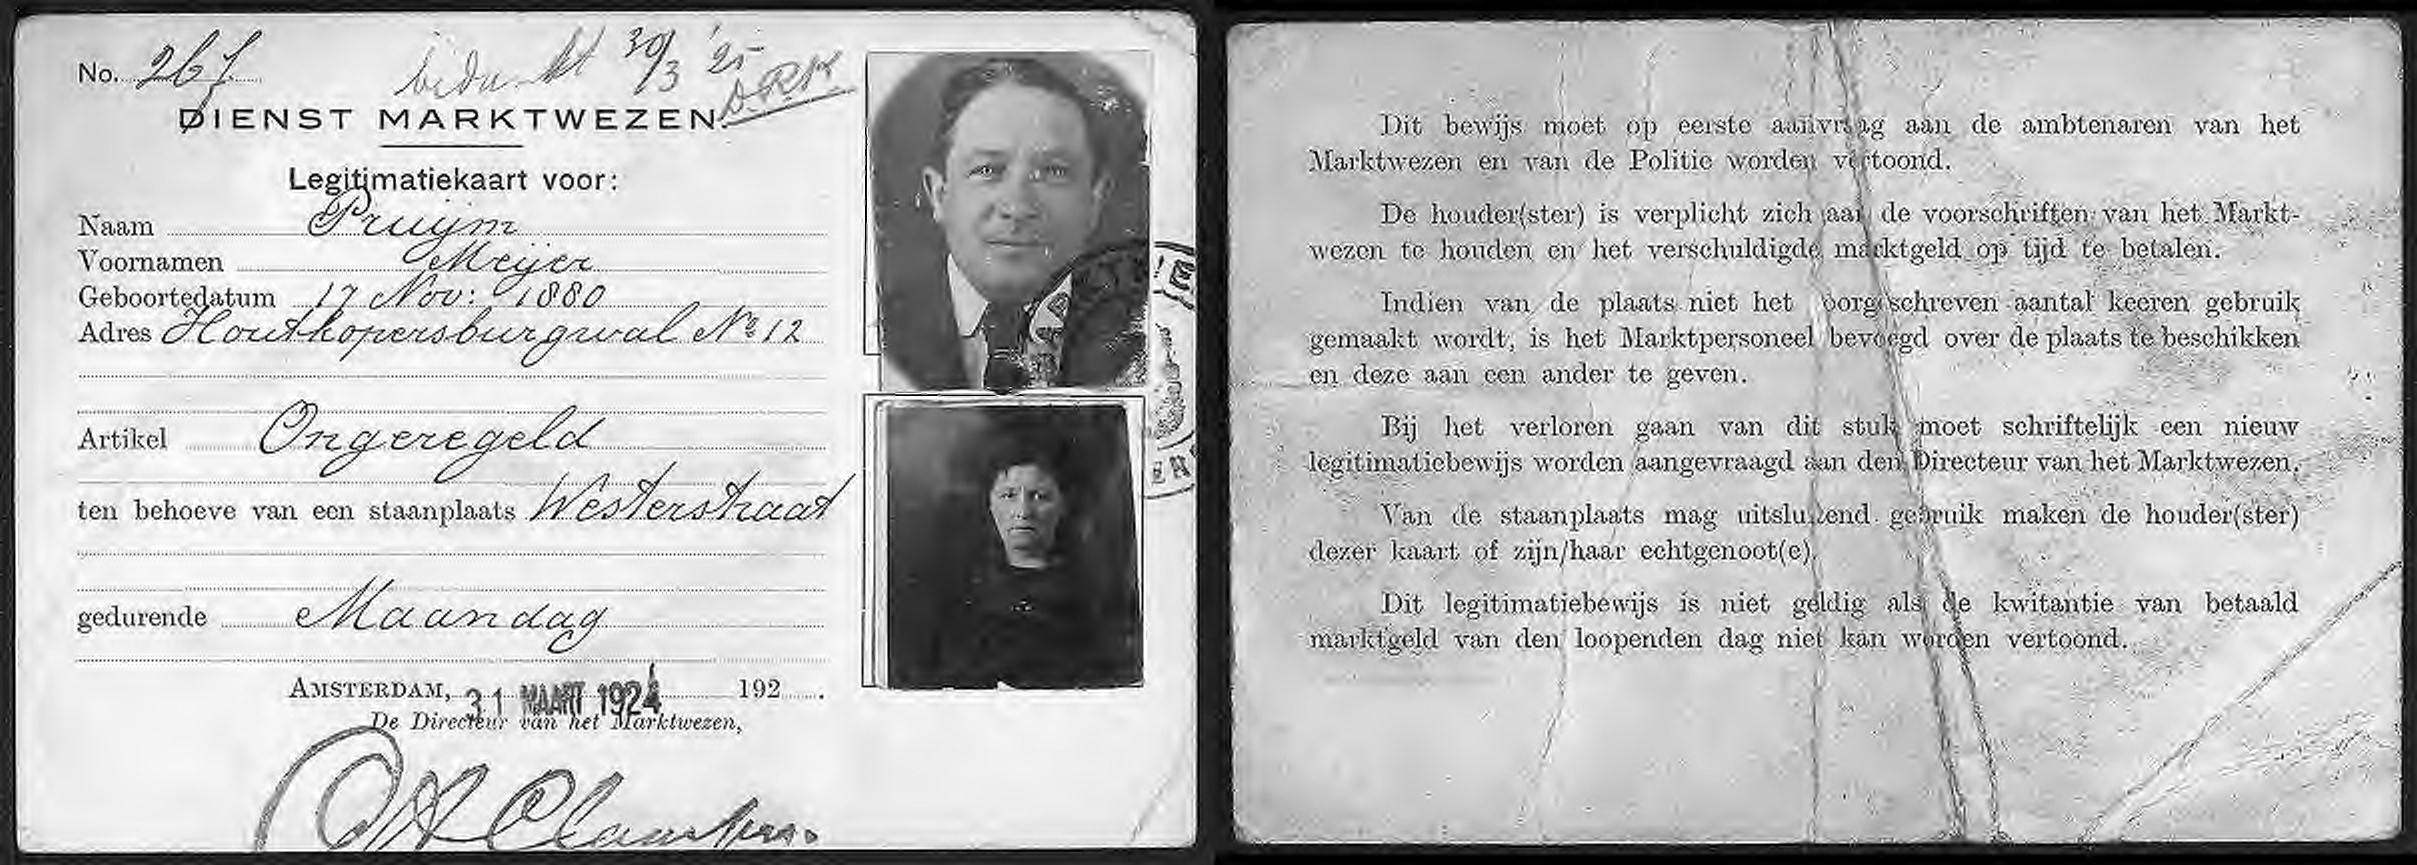 No. 267.
bedankt 30/3 '25
D.R.K.
DIENST MARKTWEZEN.
Legitimatiekaart voor:
Naam Pruijm
Voornamen Meijer
Geboortedatum 17 Nov: 1880
Adres Houtkopersburgwal No 12
Artikel Ongeregeld
ten behoeve van een staanplaats Westerstraat
gedurende Maandag
AMSTERDAM, 31 MAART 1924 192 .
De Directeur van het Marktwezen,
Dit bewijs moet op eerste aanvraag aan de ambtenaren van het
Marktwezen en van de Politie worden vertoond.
De houder(ster) is verplicht zich aan de voorschriften van het Markt-
wezen te houden en het verschuldigde marktgeld op tijd te betalen.
Indien van de plaats niet het voorgeschreven aantal keeren gebruik
gemaakt wordt, is het Marktpersoneel bevoegd over de plaats te beschikken
en deze aan een ander te geven.
Bij het verloren gaan van dit stuk moet schriftelijk een nieuw
legitimatiebewijs worden aangevraagd aan den Directeur van het Marktwezen.
Van de staanplaats mag uitsluitend gebruik maken de houder(ster)
dezer kaart of zijn/haar echtgenoot(e).
Dit legitimatiebewijs is niet geldig als de kwitantie van betaald
marktgeld van den loopenden dag niet kan worden vertoond.